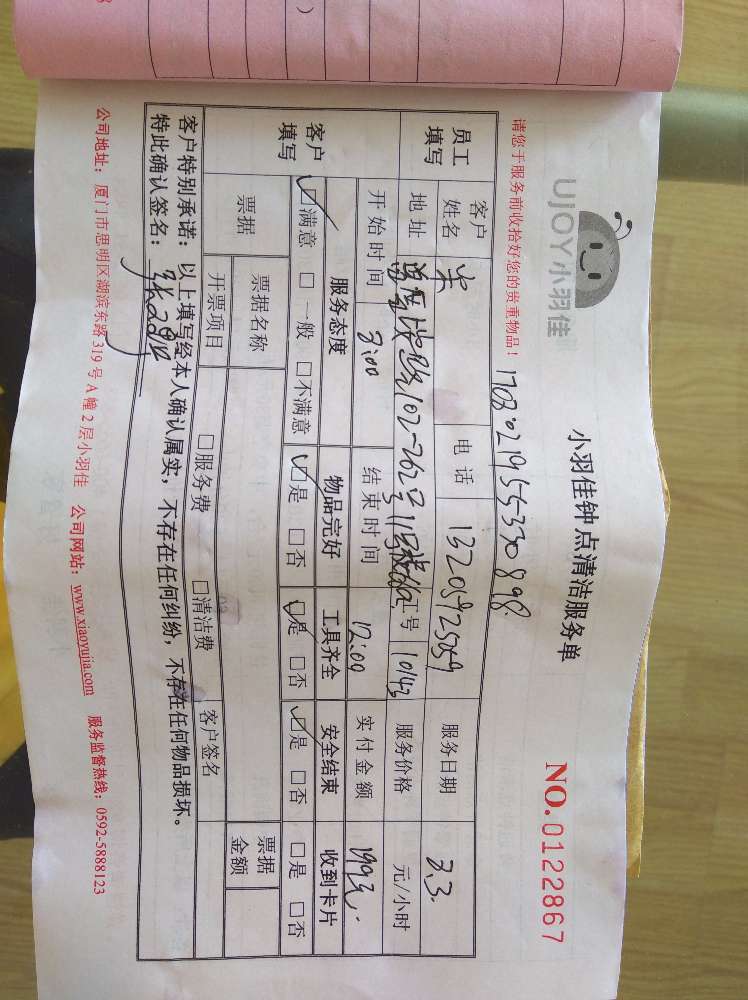 UJOY小羽佳
小羽佳钟点清洁服务单
NO.0122867
请您于服务前收拾好您的贵重物品！
1703021955330898
员工填写
客户姓名
电话 13205925059
服务日期 3.3
地址 102-262号
工号 10143
服务价格 元/小时
开始时间 9:00
结束时间 12:00
实付金额 199元
客户填写
服务态度 物品完好 工具齐全 安全结束 收到卡片
☑满意 □一般 □不满意 ☑是 □否 ☑是 □否 ☑是 □否 □是 □否
票据
票据名称
票据金额
开票项目 □服务费 □清洁费 客户签名
客户特别承诺：以上填写经本人确认属实，不存在任何纠纷，不存在任何物品损坏。
特此确认签名：
公司地址：厦门市思明区湖滨东路319号A幢2层小羽佳 公司网站：www.xiaoyujia.com 服务监督热线：0592-5888123